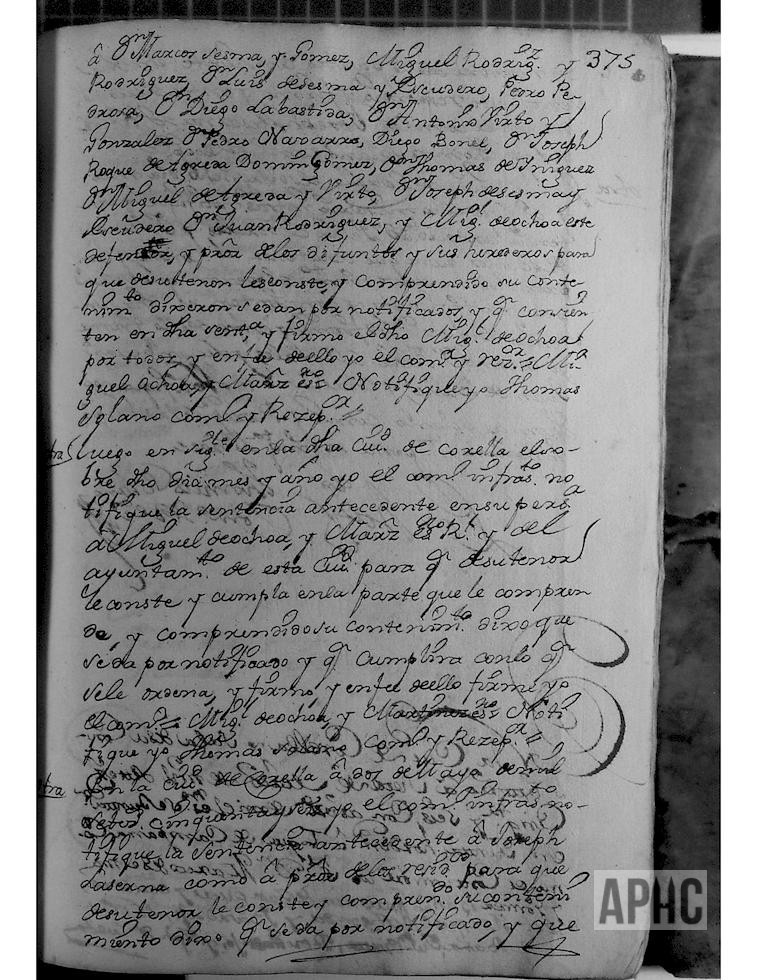 â Dn. Marcos Sesma, y Gomez, Miguel Rodrig.z y 375
Rodriguez, Dn. Luis de sesma y Escudero, Pedro Pe-
drosa, Dn. Diego Labastida, Dn. Antonio Virto y
Gonzalez Dn. Pedro Navarro, Diego Bonel, Dn. Joseph
Roque de Agreda Domin Gomez, Dn. Thomas de Yñiguez
Dn. Miguel de Agreda y Virto, Dn. Joseph de sesma y
Escudero Dn. Juan Rodriguez, y Mig.l de ochoa este
defensor, y pror. de los difuntos y sus herederos para
que de su tenor les conste, y comprendido su conte-
nim.to dixeron se dan por notificados, y q.e consien-
ten en dha sent.a, y firmo el dho Mig.l de ochoa
por todos, y en fee de ello yo el com.o y rez.or = Mi-
guel Ochoa, y Marz. ess.no Notifique yo Thomas
Solano com.o y Rezep.or =
otra Luego en sig.te en la dha Ciu.d de corella el so-
bre dho dia mes y año yo el com.o infras.to no
tifique la sentencia antecedente en su perso.a
â Miguel de ochoa, y Marz. ess.no R.l y del
ayuntam.to de esta Ciu.d para q.e de su tenor
le conste y cumpla en la parte que le compren
de, y comprendido su contenim.to dixo que
se da por notificado y q.e cumplira con lo q.e
se le ordena, y firmo, y en fee de ello firme yo
el com.o = Mig.l de ochoa, y Martinez ess.no = Noti
fique yo Thomas Solano com.o y Rezep.or =
otra En la Ciu.d de Corella â dos de Mayo de mil
setez.os cinquenta y seis yo el com.o infras.to no-
tifique la sentencia antecedente â Joseph
Laserna como â pror. de los resid.os para que
de su tenor le conste y compren.do su conteni
miento dixo q.e se da por notificado, y que
APHC